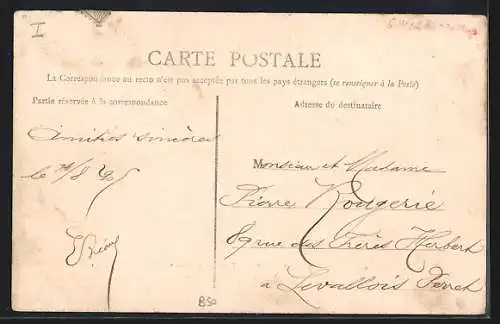 I
CARTE POSTALE
La Correspondance au recto n'est pas acceptée par tous les pays étrangers (se renseigner à la Poste)
Partie réservée à la correspondance
Adresse du destinataire
Amitiés sincères
le
Monsieur et Madame
Pierre Rougerie
89 rue des Frères Herbert
à Levallois Perret
B50